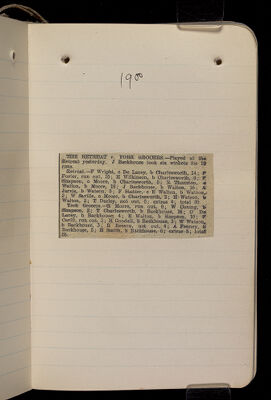 1900
THE RETREAT v. YORK GROCERS.—Played at the
Retreat yesterday. J Backhouse took six wickets for 19
runs.
Retreat.—F Wright, c De Lacey, b Charlesworth, 14; F
Porter, run out, 10; H Wilkinson, b Charlesworth, 0; F
Simpson, c Moore, b Charlesworth, 5; R Thornton, c
Walton, b Moore, 19; J Backhouse, b Walton, 16; A
Jarvis, b Watson, 5; F Slatter, c E Walton, b Watson,
2; W Saville, c Moore, b Charlesworth, 2; H Watson, b
Walton, 2; T Darley, not out, 0; extras 4; total
York Grocers.—G Moore, run out, 0; W b
Simpson, 2; T Charlesworth, b Backhouse, 16; C De
Lacey, b Backhouse, 4; E Walton, b Simpson, 10; F
run out, 2; H Goodall, b Backhouse, 3; W Watson,
b Backhouse, 3; R not out, 4; A b
Backhouse, 2; H Smith, b Backhouse, 0; extras 5; total